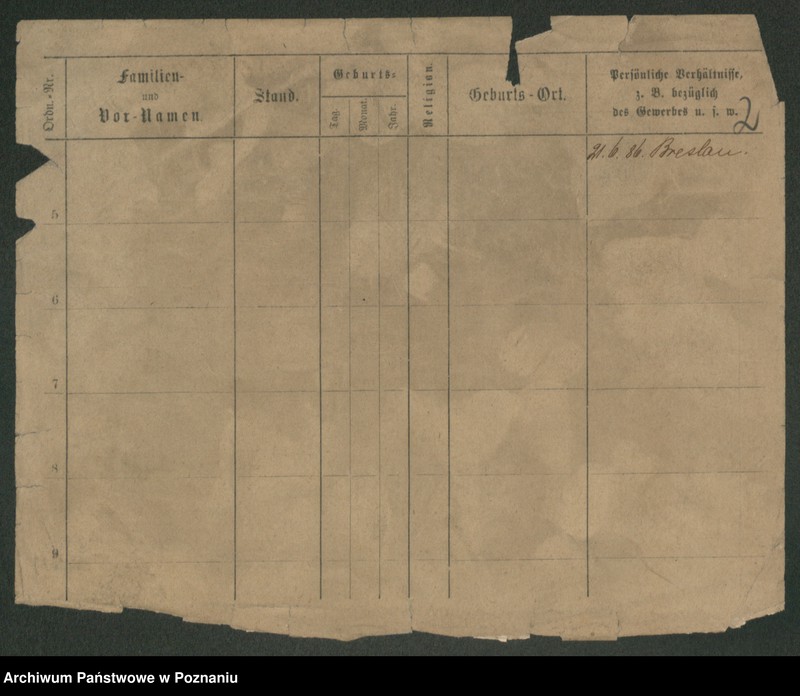 Ordn.-Nr.
Familien-
und
Vor-Namen.
Stand.
Geburts-
Tag.
Monat.
Jahr.
Religion.
Geburts-Ort.
Persönliche Verhältnisse,
z. B. bezüglich
des Gewerbes u. s. w.
2
21. 6. 86. Breslau.
5
6
7
8
9
Archiwum Państwowe w Poznaniu